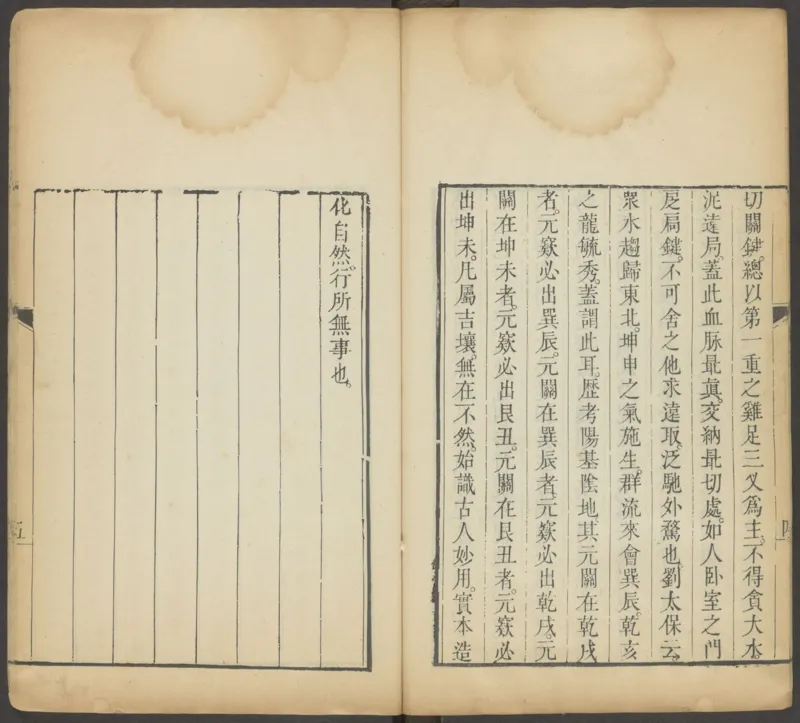 切關鍵。總以第一重之雞足三义爲主。不得貪大水。
泥遠局。蓋此血脉最眞。交納最切處。如人臥室之門
戹扃鍵。不可舍之他求遠取。泛馳外騖也。劉太保云。
衆水趨歸東北。坤申之氣施生。群流來會巽辰。乾亥
之龍毓秀。蓋謂此耳。歷考陽基陰地。其元關在乾戌
者。元竅必出巽辰。元關在巽辰者。元竅必出乾戌。元
關在坤未者。元竅必出艮丑。元關在艮丑者。元竅必
出坤未。凡屬吉壤。無在不然。始識古人妙用。實本造
化自然。行所無事也。
五